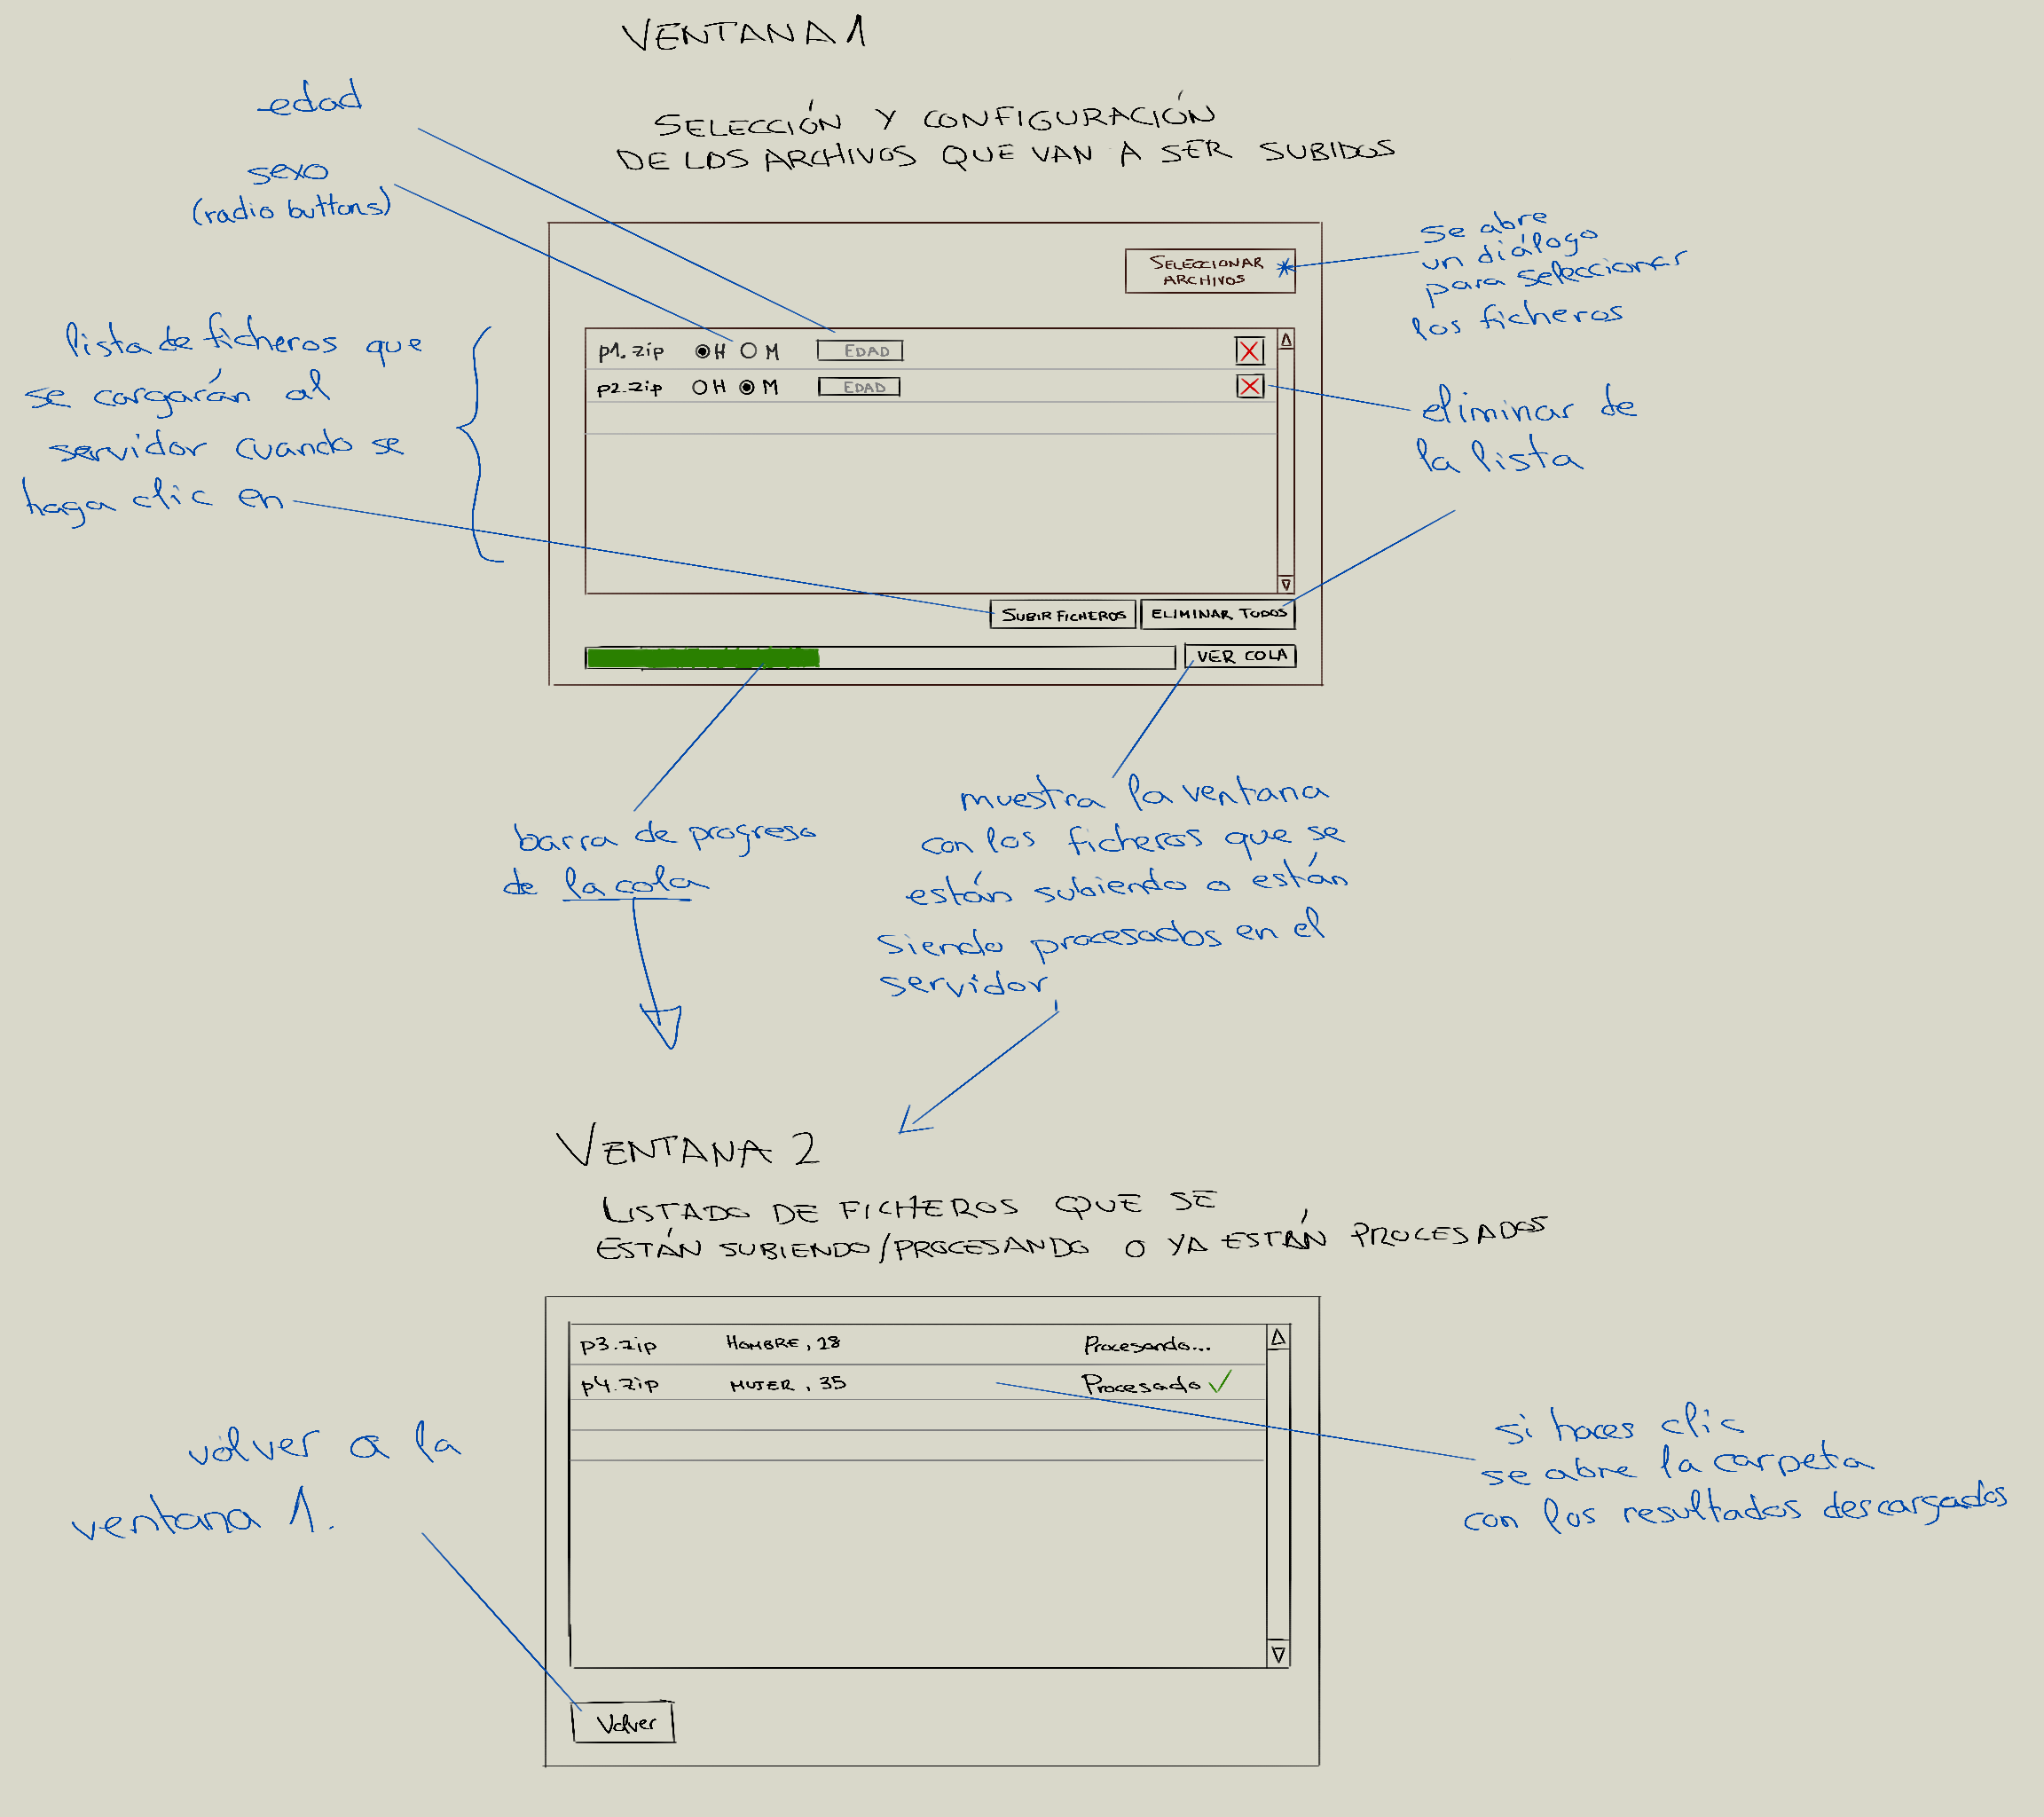 VENTANA 1
SELECCIÓN Y CONFIGURACIÓN
DE LOS ARCHIVOS QUE VAN A SER SUBIDOS
edad
sexo
(radio buttons)
se abre
un diálogo
para seleccionar
los ficheros
SELECCIONAR
ARCHIVOS *
lista de ficheros que
se cargarán al
servidor cuando se
haga clic en
p1.zip H M EDAD X
p2.zip H M EDAD X
eliminar de
la lista
SUBIR FICHEROS ELIMINAR TODOS
VER COLA
barra de progreso
de la cola
muestra la ventana
con los ficheros que se
están subiendo o están
siendo procesados en el
servidor
VENTANA 2
LISTADO DE FICHEROS QUE SE
ESTÁN SUBIENDO/PROCESANDO O YA ESTÁN PROCESADOS
p3.zip HOMBRE, 28 Procesando...
p4.zip MUJER, 35 Procesado ✓
volver a la
ventana 1.
si haces clic
se abre la carpeta
con los resultados descargados
Volver